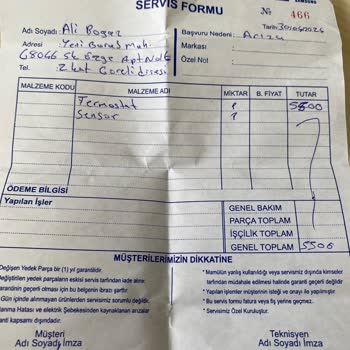 SERVİS FORMU
SAMSUNG
№ 466
Adı Soyadı: Ali Bogaz
Tarih: 30/06/2026
Adresi Yeni Baraj mah.
Başvuru Nedeni: Arıza
68066 sk Özge Apt No
Markası :
Tel. : 2 kat
Özel Not :
MALZEME KODU MALZEME ADI MİKTAR B. FİYAT TUTAR
Termostat 1 5500
Sensor 1
ÖDEME BİLGİSİ
Yapılan İşler
GENEL BAKIM
PARÇA TOPLAM
İŞÇİLİK TOPLAM
GENEL TOPLAM 5500
MÜŞTERİLERİMİZİN DİKKATİNE
Değişen Yedek Parça bir (1) yıl garantilidir.
değiştirilen yedek parçaların eskisi servis tarafından iade alınır.
garantinin geçerli olması için bu belgenin ibrazı şarttır.
Gün içinde alınmayan ürünlerden servisimiz sorumlu değildir.
lanma Hatası ve elektrik Şebekesinden kaynaklanan arızalar
anti kapsamı dışındadır.
* Mamülün yanlış kullanıldığı veya servisimiz dışında kimseler
tarafından müdahale edilmesi halinde garanti geçerli değildir.
* Yapılan işlemler müşterinin isteği ve onayı ile yapılmıştır.
* Bu servis formu fatura veya fiş yerine geçmez.
* Servisimiz Özel Kuruluştur.
Müşteri
Adı Soyadı İmza
Teknisyen
Adı Soyadı İmza